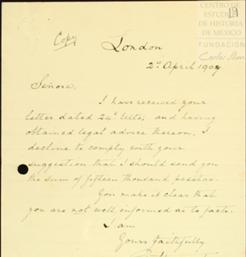 CENTRO DE
ESTUDIOS
DE HISTORIA
DE MEXICO
FUNDACIÓN
Carlos Slim
Copy
London
2nd April 1909
Señore,
I have received your
letter dated 24th ulto; and having
obtained legal advice thereon, I
decline to comply with your
suggestion that I should send you
the sum of fifteen thousand pesetas.
You make it clear that
you are not well informed as to facts.
I am
Yours faithfully